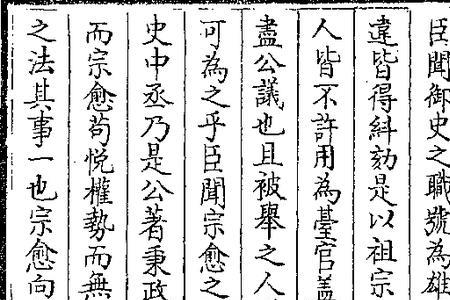 臣聞御史之職號為雄
違皆得糾劾是以祖宗
人皆不許用為臺官蓋
盡公議也且被舉之人
可為之乎臣聞宗愈之
史中丞乃是公著秉政
而宗愈苟悅權勢而無
之法其事一也宗愈向